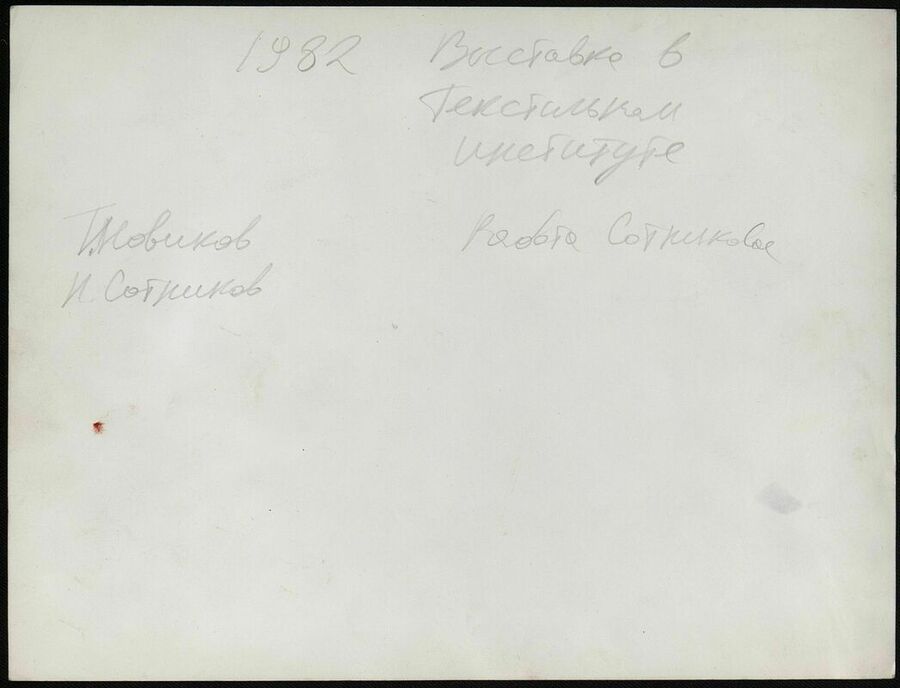 1982 Выставка в
Текстильном
институте
Т. Новиков
И. Сотников
Работа Сотникова